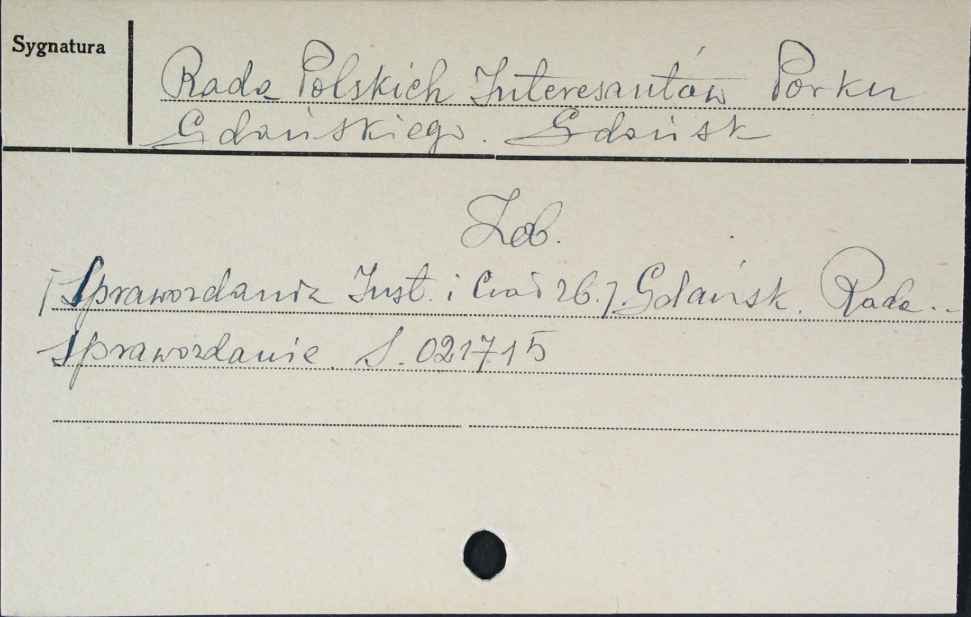 Sygnatura
Rada Polskich Interesantów Portu
Gdańskiego. Gdańsk
Zob.
[Sprawozdania Inst. i 26.] Gdańsk. Rada...
Sprawozdanie. S. 021715